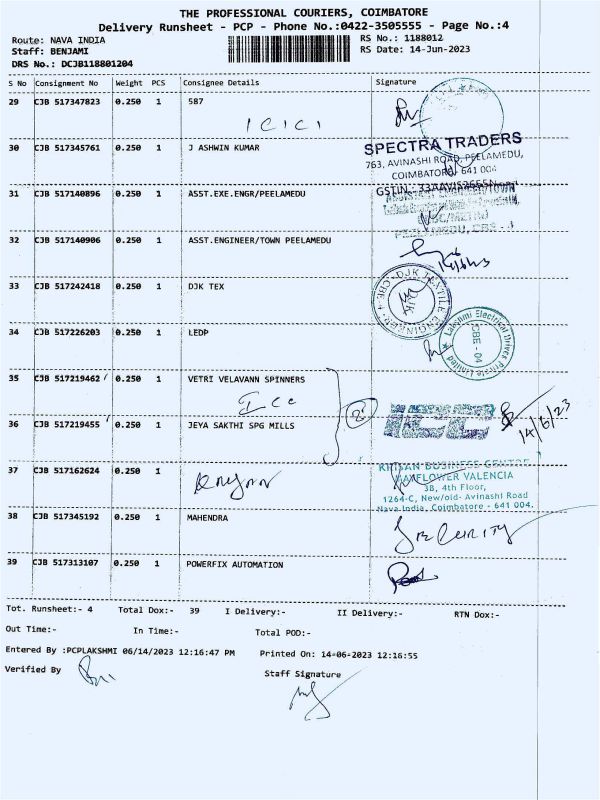 THE PROFESSIONAL COURIERS, COIMBATORE
Delivery Runsheet - PCP - Phone No.:0422-3505555 - Page No.:4
Route: NAVA INDIA RS No.: 1188012
Staff: BENJAMI RS Date: 14-Jun-2023
DRS No.: DCJB118801204
S No Consignment No Weight PCS Consignee Details Signature
29 CJB 517347823 0.250 1 587
ICICI
30 CJB 517345761 0.250 1 J ASHWIN KUMAR
SPECTRA TRADERS
763, AVINASHI ROAD, PEELAMEDU,
COIMBATORE - 641 004
31 CJB 517140896 0.250 1 ASST.EXE.ENGR/PEELAMEDU
GSTIN :
PEELAMEDU, CBE - 4
32 CJB 517140906 0.250 1 ASST.ENGINEER/TOWN PEELAMEDU
33 CJB 517242418 0.250 1 DJK TEX
DJK TEXTILE ENGINEER CBE-4
DJK
34 CJB 517226203 0.250 1 LEDP
Lakshmi Electrical Drives Private Limited
CBE - 04
35 CJB 517219462 0.250 1 VETRI VELAVANN SPINNERS
ICC
36 CJB 517219455 0.250 1 JEYA SAKTHI SPG MILLS
2 ICC 14/6/23
37 CJB 517162624 0.250 1
KRISAN BUSINESS CENTRE
MAYFLOWER VALENCIA
3B, 4th Floor,
1264-C, New/old- Avinashi Road
Nava India, Coimbatore - 641 004.
38 CJB 517345192 0.250 1 MAHENDRA
SECURITY
39 CJB 517313107 0.250 1 POWERFIX AUTOMATION
Tot. Runsheet:- 4 Total Dox:- 39 I Delivery:- II Delivery:- RTN Dox:-
Out Time:- In Time:- Total POD:-
Entered By :PCPLAKSHMI 06/14/2023 12:16:47 PM Printed On: 14-06-2023 12:16:55
Verified By Staff Signature